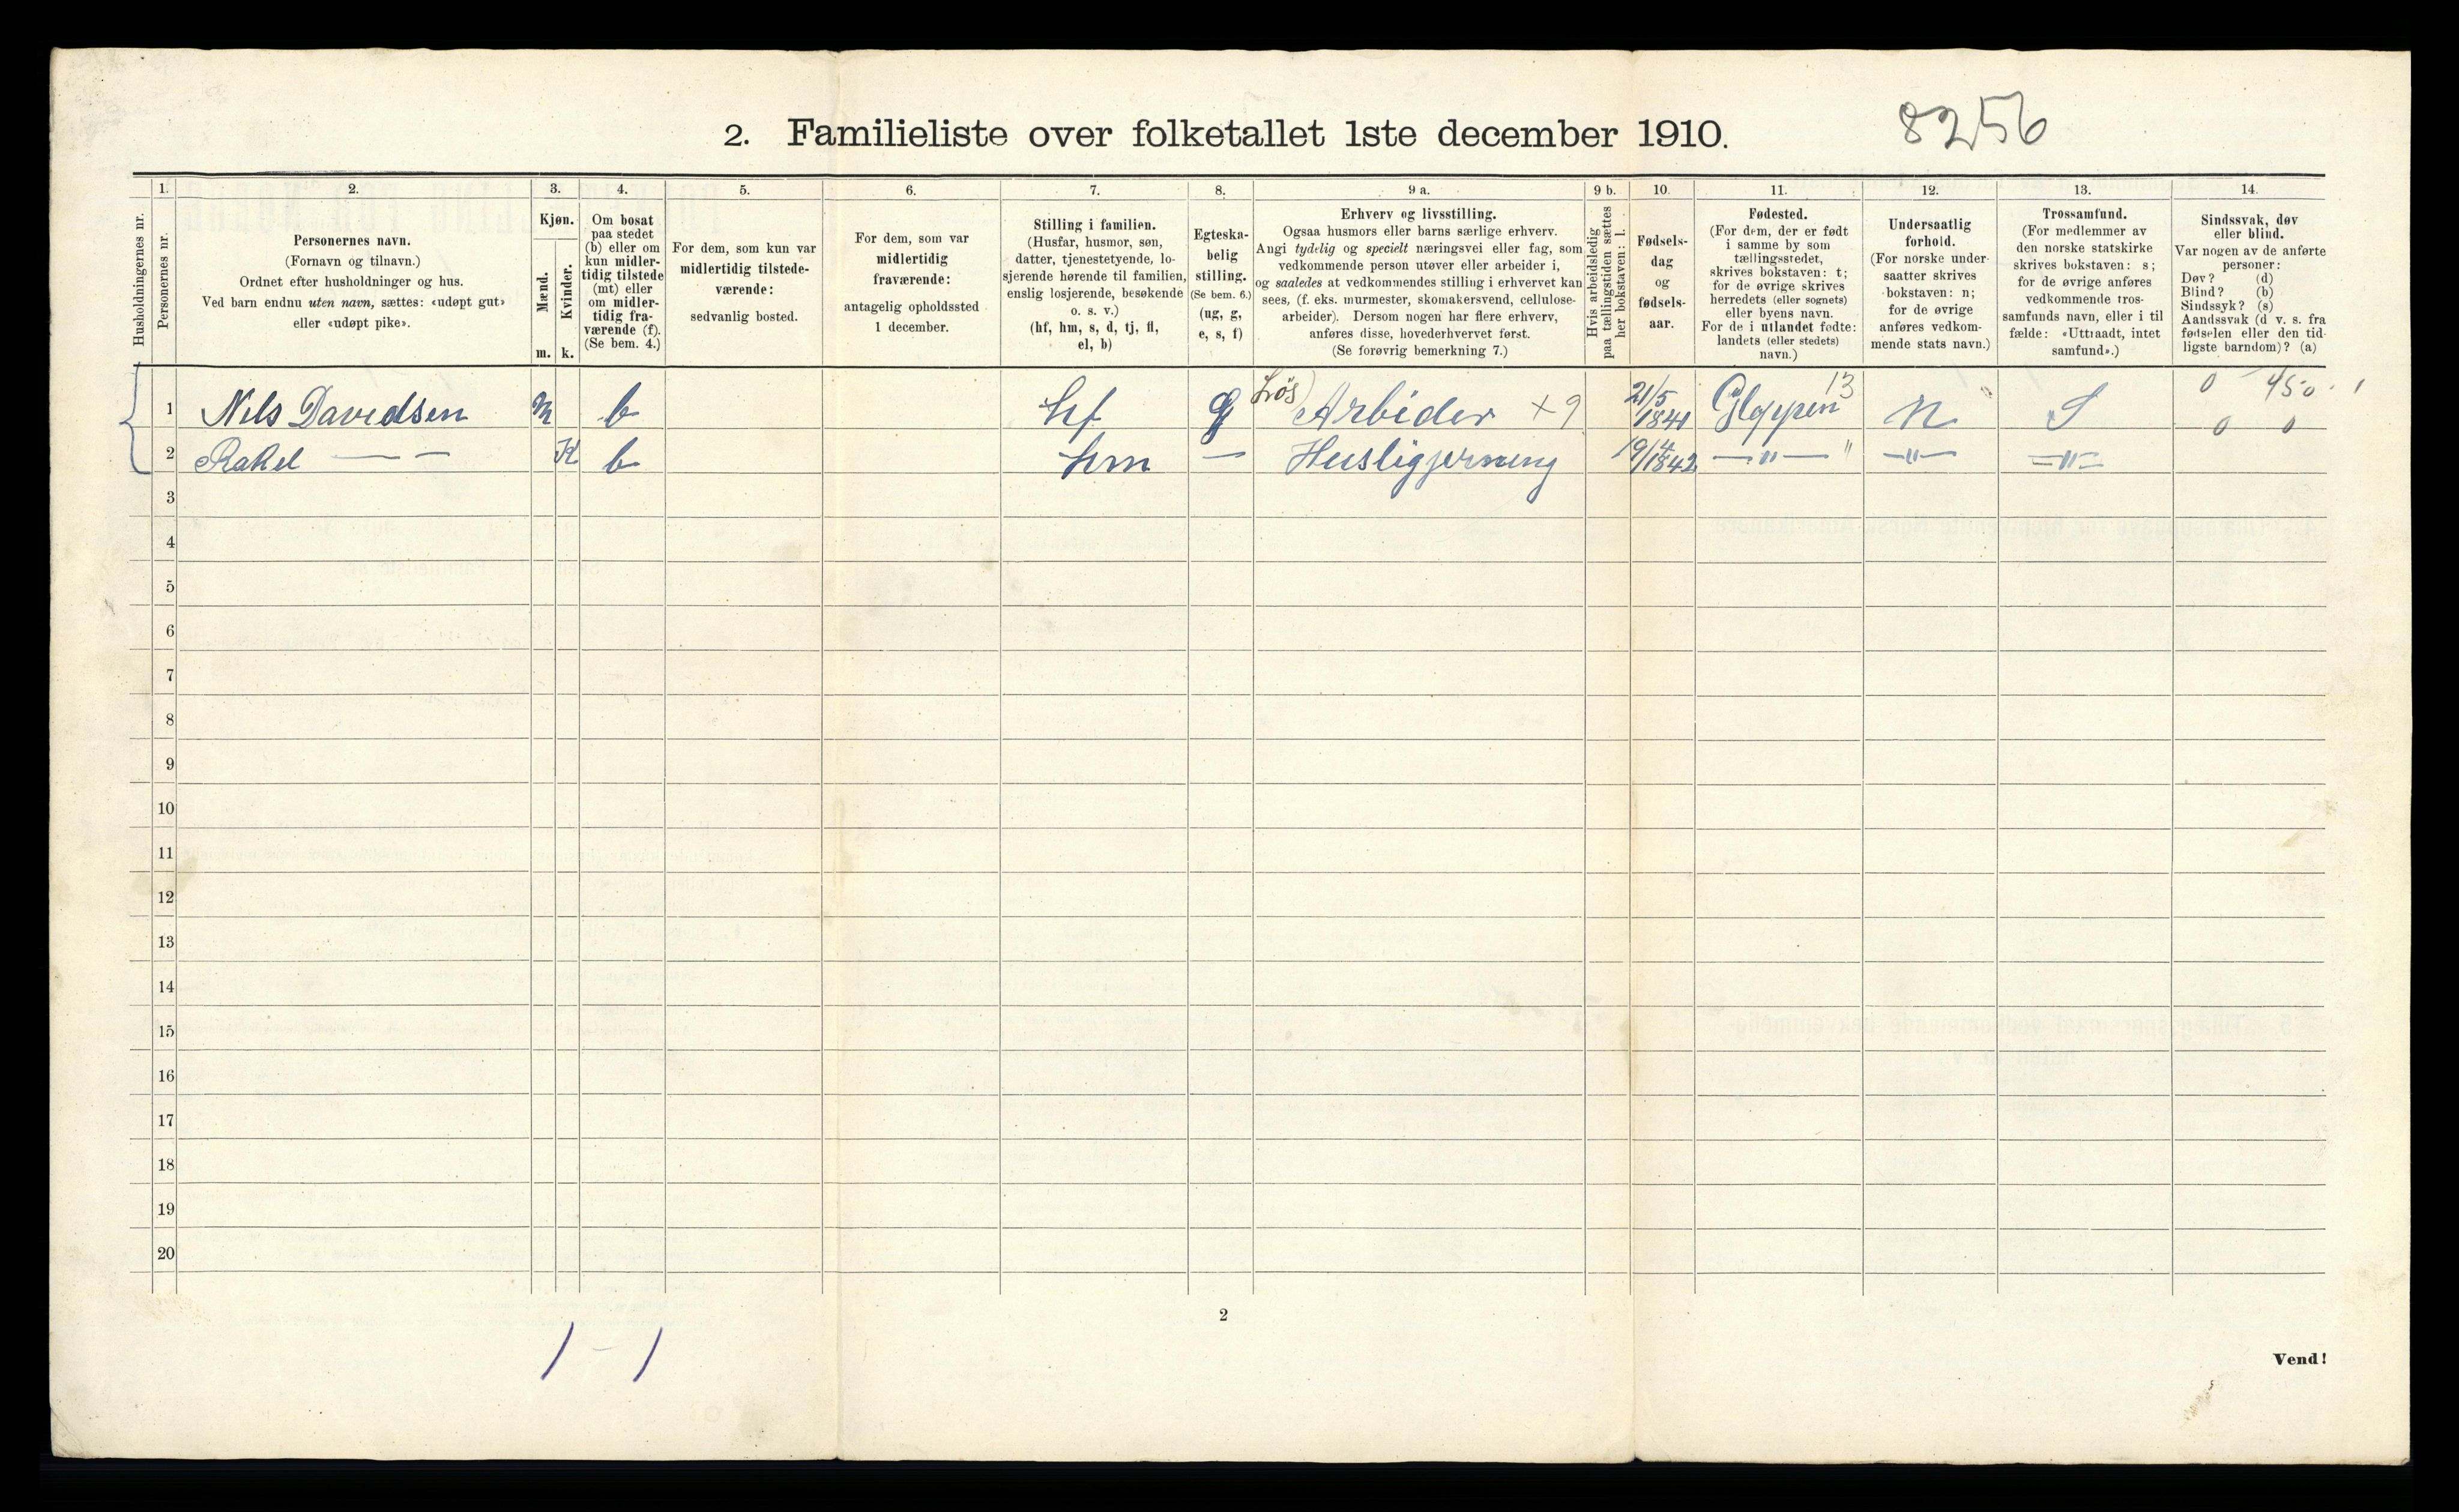 2. Familieliste over folketallet 1ste december 1910.
8256
Husholdningernes nr.
1.
Personernes nr.
2.
Personernes navn.
(Fornavn og tilnavn.)
Ordnet efter husholdninger og hus.
Ved barn endnu uten navn, sættes: «udøpt gut»
eller «udøpt pike».
3.
Kjøn.
Mænd.
m.
Kvinder.
k.
4.
Om bosat
paa stedet
(b) eller om
kun midler-
tidig tilstede
(mt) eller
om midler-
tidig fra-
værende (f).
(Se bem. 4.)
5.
For dem, som kun var
midlertidig tilstede-
værende:
sedvanlig bosted.
6.
For dem, som var
midlertidig
fraværende:
antagelig opholdssted
1 december.
7.
Stilling i familien.
(Husfar, husmor, søn,
datter, tjenestetyende, lo-
sjerende hørende til familien,
enslig losjerende, besøkende
o. s. v.)
(hf, hm, s, d, tj, fl,
el, b)
8.
Egteska-
belig
stilling.
(Se bem. 6.)
(ug, g,
e, s, f)
9 a.
Erhverv og livsstilling.
Ogsaa husmors eller barns særlige erhverv.
Angi tydelig og specielt næringsvei eller fag, som
vedkommende person utøver eller arbeider i,
og saaledes at vedkommendes stilling i erhvervet kan
sees, (f. eks. murmester, skomakersvend, cellulose-
arbeider). Dersom nogen har flere erhverv,
anføres disse, hovederhvervet først.
(Se forøvrig bemerkning 7.)
9 b.
Hvis arbeidsledig
paa tællingstiden sættes
her bokstaven: l.
10.
Fødsels-
dag
og
fødsels-
aar.
11.
Fødested.
(For dem, der er født
i samme by som
tællingsstedet,
skrives bokstaven: t;
for de øvrige skrives
herredets (eller sognets)
eller byens navn.
For de i utlandet fødte:
landets (eller stedets)
navn.)
12.
Undersaatlig
forhold.
(For norske under-
saatter skrives
bokstaven: n;
for de øvrige
anføres vedkom-
mende stats navn.)
13.
Trossamfund.
(For medlemmer av
den norske statskirke
skrives bokstaven: s;
for de øvrige anføres
vedkommende tros-
samfunds navn, eller i til-
fælde: «Uttraadt, intet
samfund».)
14.
Sindssvak, døv
eller blind.
Var nogen av de anførte
personer:
Døv? (d)
Blind? (b)
Sindssyk? (s)
Aandssvak (d. v. s. fra
fødselen eller den tid-
ligste barndom)? (a)
1 Nils Davidsen m b hf g Løs Arbider x 9 21/5 1841 Gloppen 13 n S 0 450 1
0 0
2 Rakel — — K b hm — Husligjerning 19/4 1842 —"— " —"— —"—
3
4
5
6
7
8
9
10
11
12
13
14
15
16
17
18
19
20
2
1 - 1
Vend!